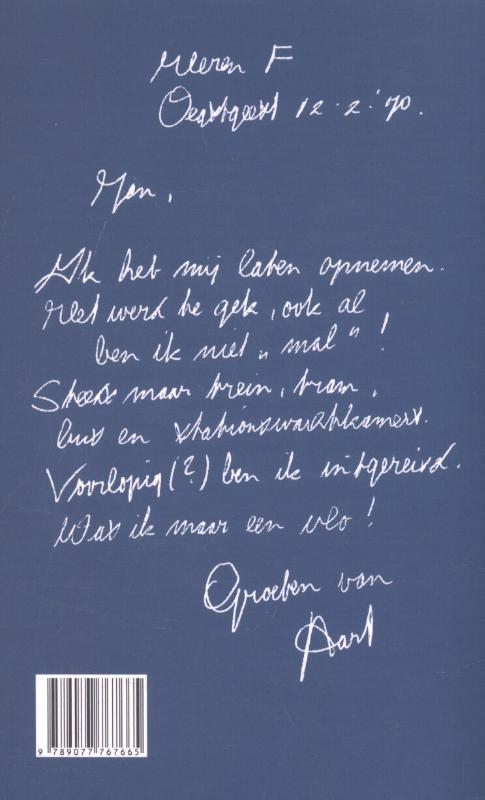 Heren F
Oegstgeest 12-2-'70.
Jan,
Ik heb mij laten opnemen.
Het werd te gek, ook al
ben ik niet „mal"!
Steeds maar trein, tram,
bus en stationswachtkamers.
Voorlopig(?) ben ik uitgereisd.
Was ik maar een vlo!
Groeten van
Aart
9 789077 767665